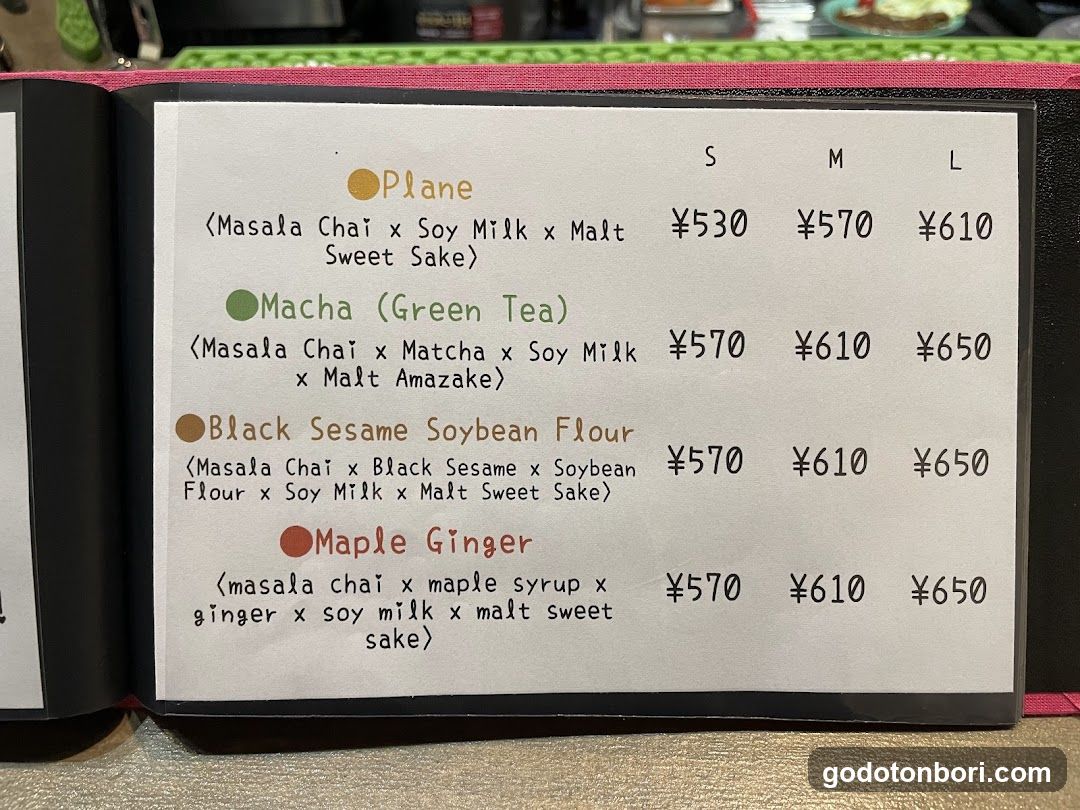 S M L
●Plane
〈Masala Chai x Soy Milk x Malt
Sweet Sake〉
¥530 ¥570 ¥610
●Macha (Green Tea)
〈Masala Chai x Matcha x Soy Milk
x Malt Amazake〉
¥570 ¥610 ¥650
●Black Sesame Soybean Flour
〈Masala Chai x Black Sesame x Soybean
Flour x Soy Milk x Malt Sweet Sake〉
¥570 ¥610 ¥650
●Maple Ginger
〈masala chai x maple syrup x
ginger x soy milk x malt sweet
sake〉
¥570 ¥610 ¥650
godotonbori.com